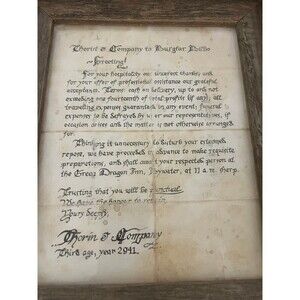 Thorin & Company to Burglar Bilbo
Greeting!
For your hospitality our sincerest thanks, and
for your offer of professional assistance our grateful
acceptance. Terms: cash on delivery, up to and not
exceeding one fourteenth of total profits (if any); all
traveling expenses guaranteed in any event; funeral
expenses to be defrayed by us or our representatives, if
occasion arises and the matter is not otherwise arranged
for.
Thinking it unnecessary to disturb your esteemed
repose, we have proceeded in advance to make requisite
preparations, and shall await your respected person at
the Green Dragon Inn, Bywater, at 11 a.m. sharp.
Trusting that you will be punctual.
We have the honour to remain
Yours deeply,
Thorin & Company
Third age, year 2941.